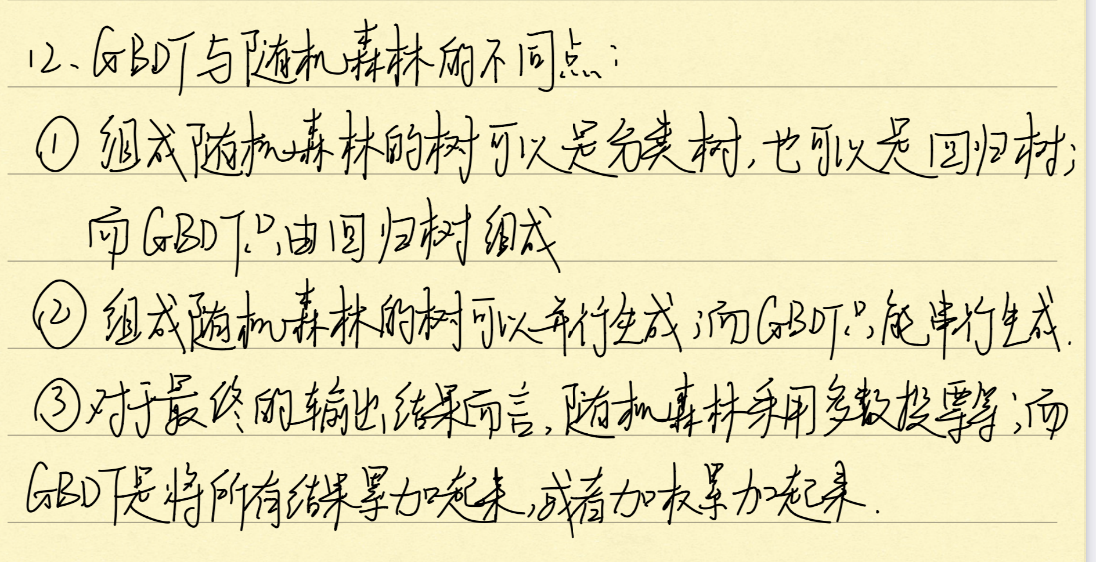 12、GBDT与随机森林的不同点：
① 组成随机森林的树可以是分类树，也可以是回归树；
而GBDT只由回归树组成
② 组成随机森林的树可以并行生成；而GBDT只能串行生成.
③ 对于最终的输出结果而言，随机森林采用多数投票等；而
GBDT是将所有结果累加起来，或者加权累加起来.